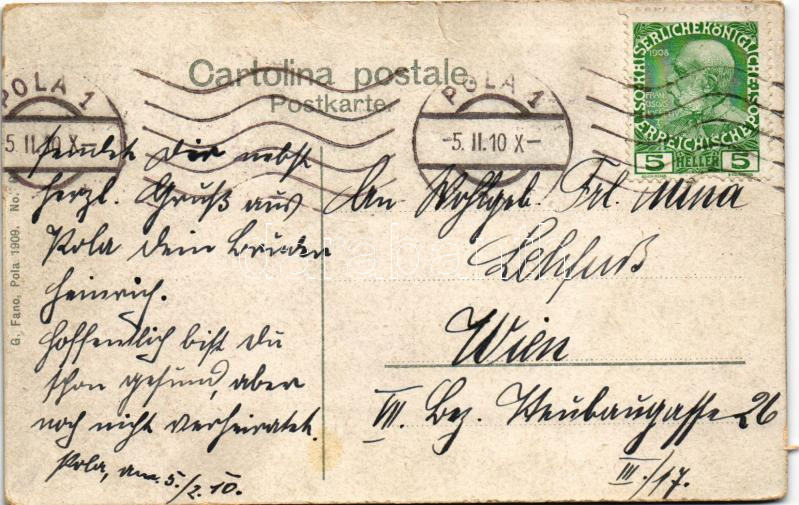 Cartolina postale.
Postkarte.
POLA 1
-5. II. 10 X-
POLA 1
5. II. 10 X
1908
KAISERLICHEKÖNIGLICHE
ÖSTERREICHISCHEPOST
5 HELLER 5
sendet Dir nebst
herzl. Gruß aus
Pola dein Bruder
Heinrich.
Hoffentlich bist Du
schon gesund, aber
noch nicht verheiratet.
Pola, am 5./2. 10.
An Wohlgeb. Frl. Mina
Wien
VII. Bez. Neubaugasse 26
III./17.
G. Fano, Pola 1909. No.
darabanth